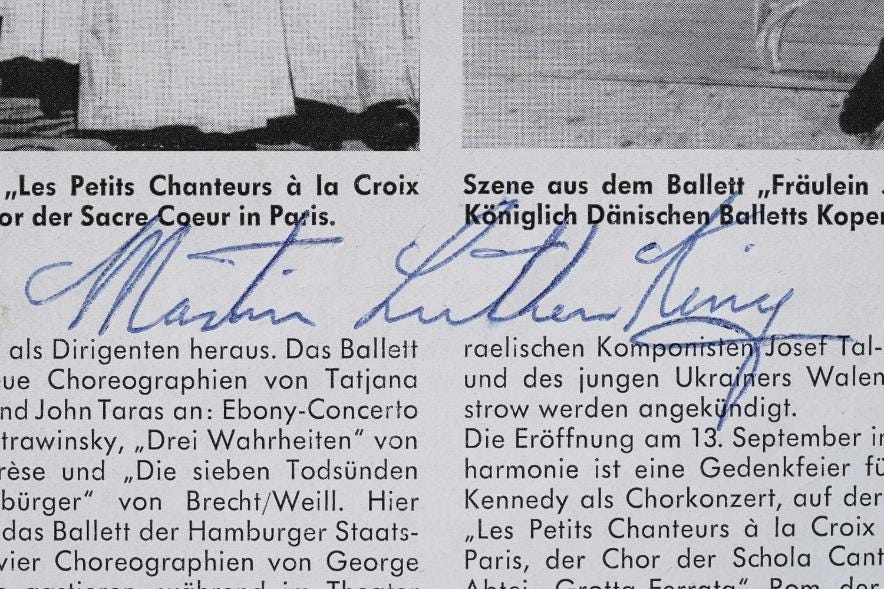 „Les Petits Chanteurs à la Croix
or der Sacre Coeur in Paris.
Szene aus dem Ballett „Fräulein
Königlich Dänischen Balletts Kopen
Martin Luther King
als Dirigenten heraus. Das Ballett
eue Choreographien von Tatjana
nd John Taras an: Ebony-Concerto
trawinsky, „Drei Wahrheiten“ von
rèse und „Die sieben Todsünden
bürger“ von Brecht/Weill. Hier
das Ballett der Hamburger Staats-
vier Choreographien von George
gastieren während im Theater
raelischen Komponisten Josef Tal-
und des jungen Ukrainers Walen
strow werden angekündigt.
Die Eröffnung am 13. September in
harmonie ist eine Gedenkfeier fü
Kennedy als Chorkonzert, auf der
„Les Petits Chanteurs à la Croix
Paris, der Chor der Schola Cant
Abtei „Grotta Ferrata“ Rom der